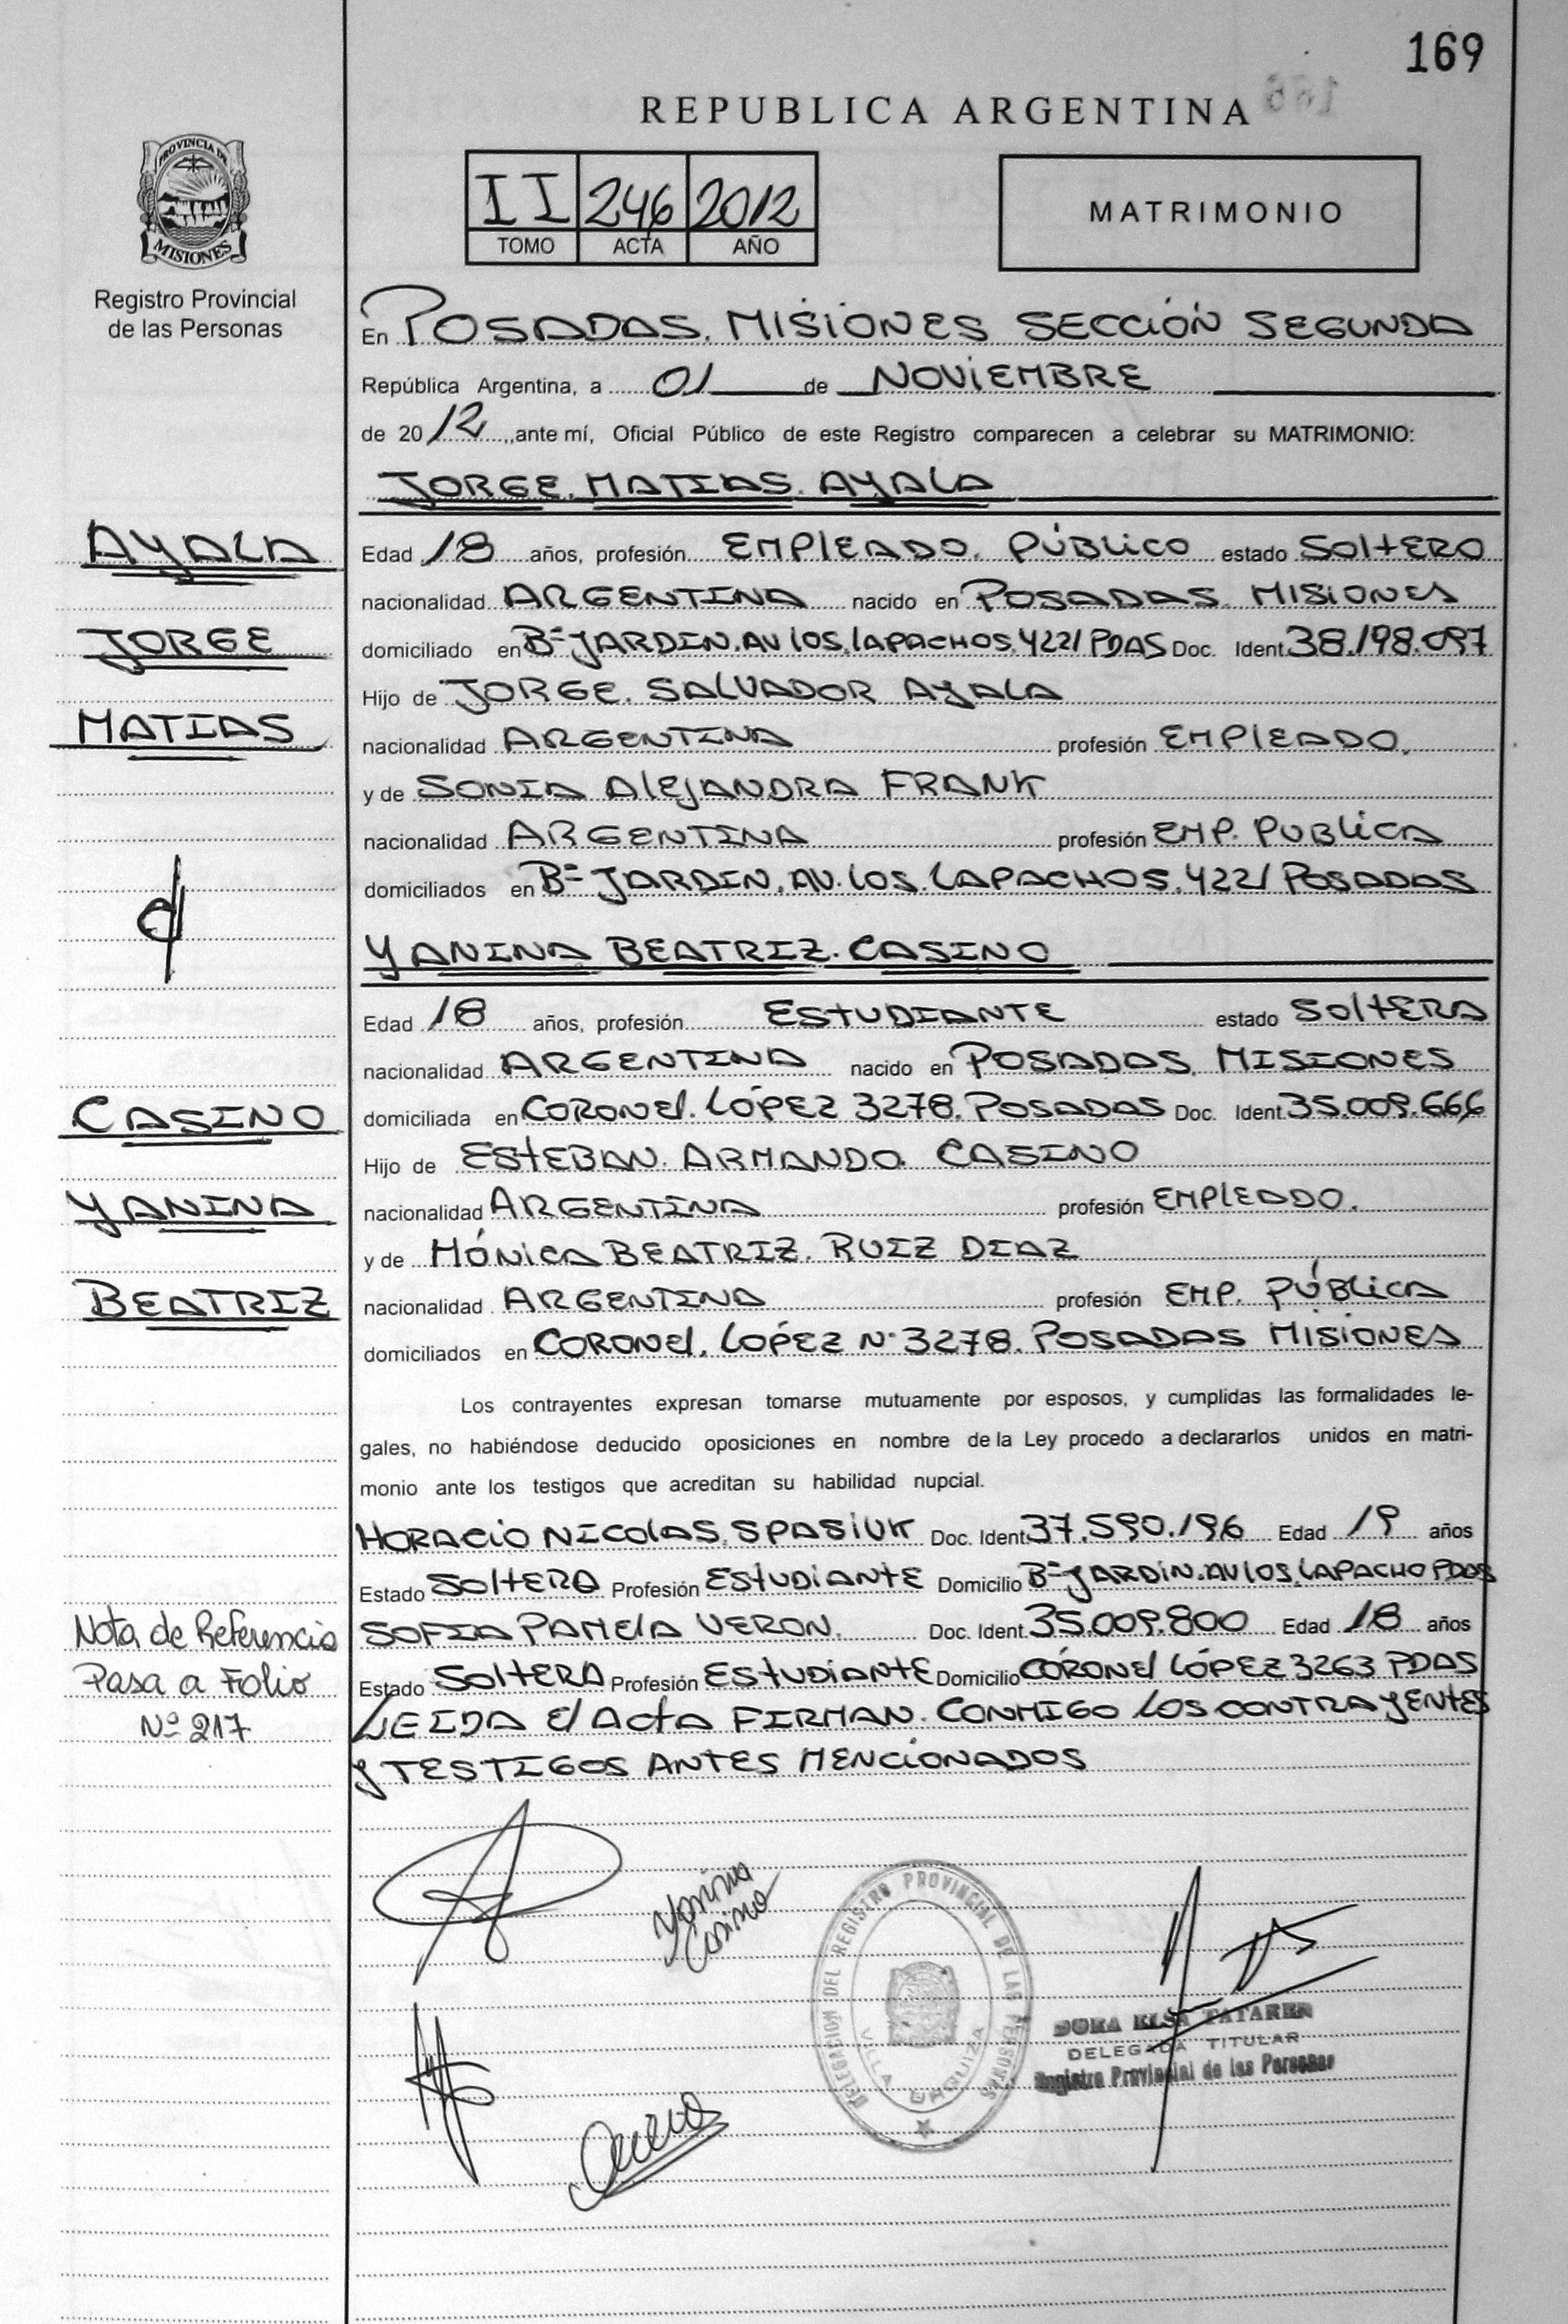 169
REPUBLICA ARGENTINA
PROVINCIA DE
MISIONES
Registro Provincial
de las Personas
II 246 2012
TOMO ACTA AÑO
MATRIMONIO
En POSADAS. MISIONES SECCIÓN SEGUNDA
República Argentina, a 01 de NOVIEMBRE
de 2012, ante mí, Oficial Público de este Registro comparecen a celebrar su MATRIMONIO:
JORGE. MATIAS. AYALA
AYALA
JORGE
MATIAS
Edad 18 años, profesión EMPLEADO. PÚBLICO estado SOLTERO
nacionalidad ARGENTINA nacido en POSADAS. MISIONES
domiciliado en Bº JARDIN. AV LOS. LAPACHOS. 4221 PDAS Doc. Ident. 38.198.097
Hijo de JORGE. SALVADOR AYALA
nacionalidad ARGENTINA profesión EMPLEADO.
y de SONIA ALEJANDRA FRANK
nacionalidad ARGENTINA profesión EMP. PUBLICA
domiciliados en Bº JARDIN. AV. LOS. LAPACHOS. 4221 POSADAS
YANINA BEATRIZ. CASINO
CASINO
YANINA
BEATRIZ
Edad 18 años, profesión ESTUDIANTE estado SOLTERA
nacionalidad ARGENTINA nacido en POSADAS. MISIONES
domiciliada en CORONEL. LÓPEZ 3278. POSADAS Doc. Ident. 35.009.666
Hijo de ESTEBAN. ARMANDO. CASINO
nacionalidad ARGENTINA profesión EMPLEADO.
y de MÓNICA BEATRIZ. RUIZ DIAZ
nacionalidad ARGENTINA profesión EMP. PÚBLICA
domiciliados en CORONEL. LOPÉZ Nº 3278. POSADAS MISIONES
Los contrayentes expresan tomarse mutuamente por esposos, y cumplidas las formalidades le-
gales, no habiéndose deducido oposiciones en nombre de la Ley procedo a declararlos unidos en matri-
monio ante los testigos que acreditan su habilidad nupcial.
HORACIO NICOLAS. SPASIUK Doc. Ident. 37.590.196 Edad 19 años
Estado SOLTERO Profesión ESTUDIANTE Domicilio Bº JARDIN. AV LOS. LAPACHO PDAS
SOFIA PAMELA VERON. Doc. Ident. 35.009.800 Edad 18 años
Estado SOLTERA Profesión ESTUDIANTE Domicilio CORONEL LÓPEZ 3263 PDAS
LEIDA el ACTA FIRMAN. CONMIGO LOS CONTRAYENTES
Y TESTIGOS ANTES MENCIONADOS
Nota de Referencia
Pasa a Folio
Nº 217
Yanina
Casino
DELEGACION DEL REGISTRO PROVINCIAL DE LAS PERSONAS
VILLA URQUIZA
DORA ELSA TATAREN
DELEGADA TITULAR
Registro Provincial de las Personas